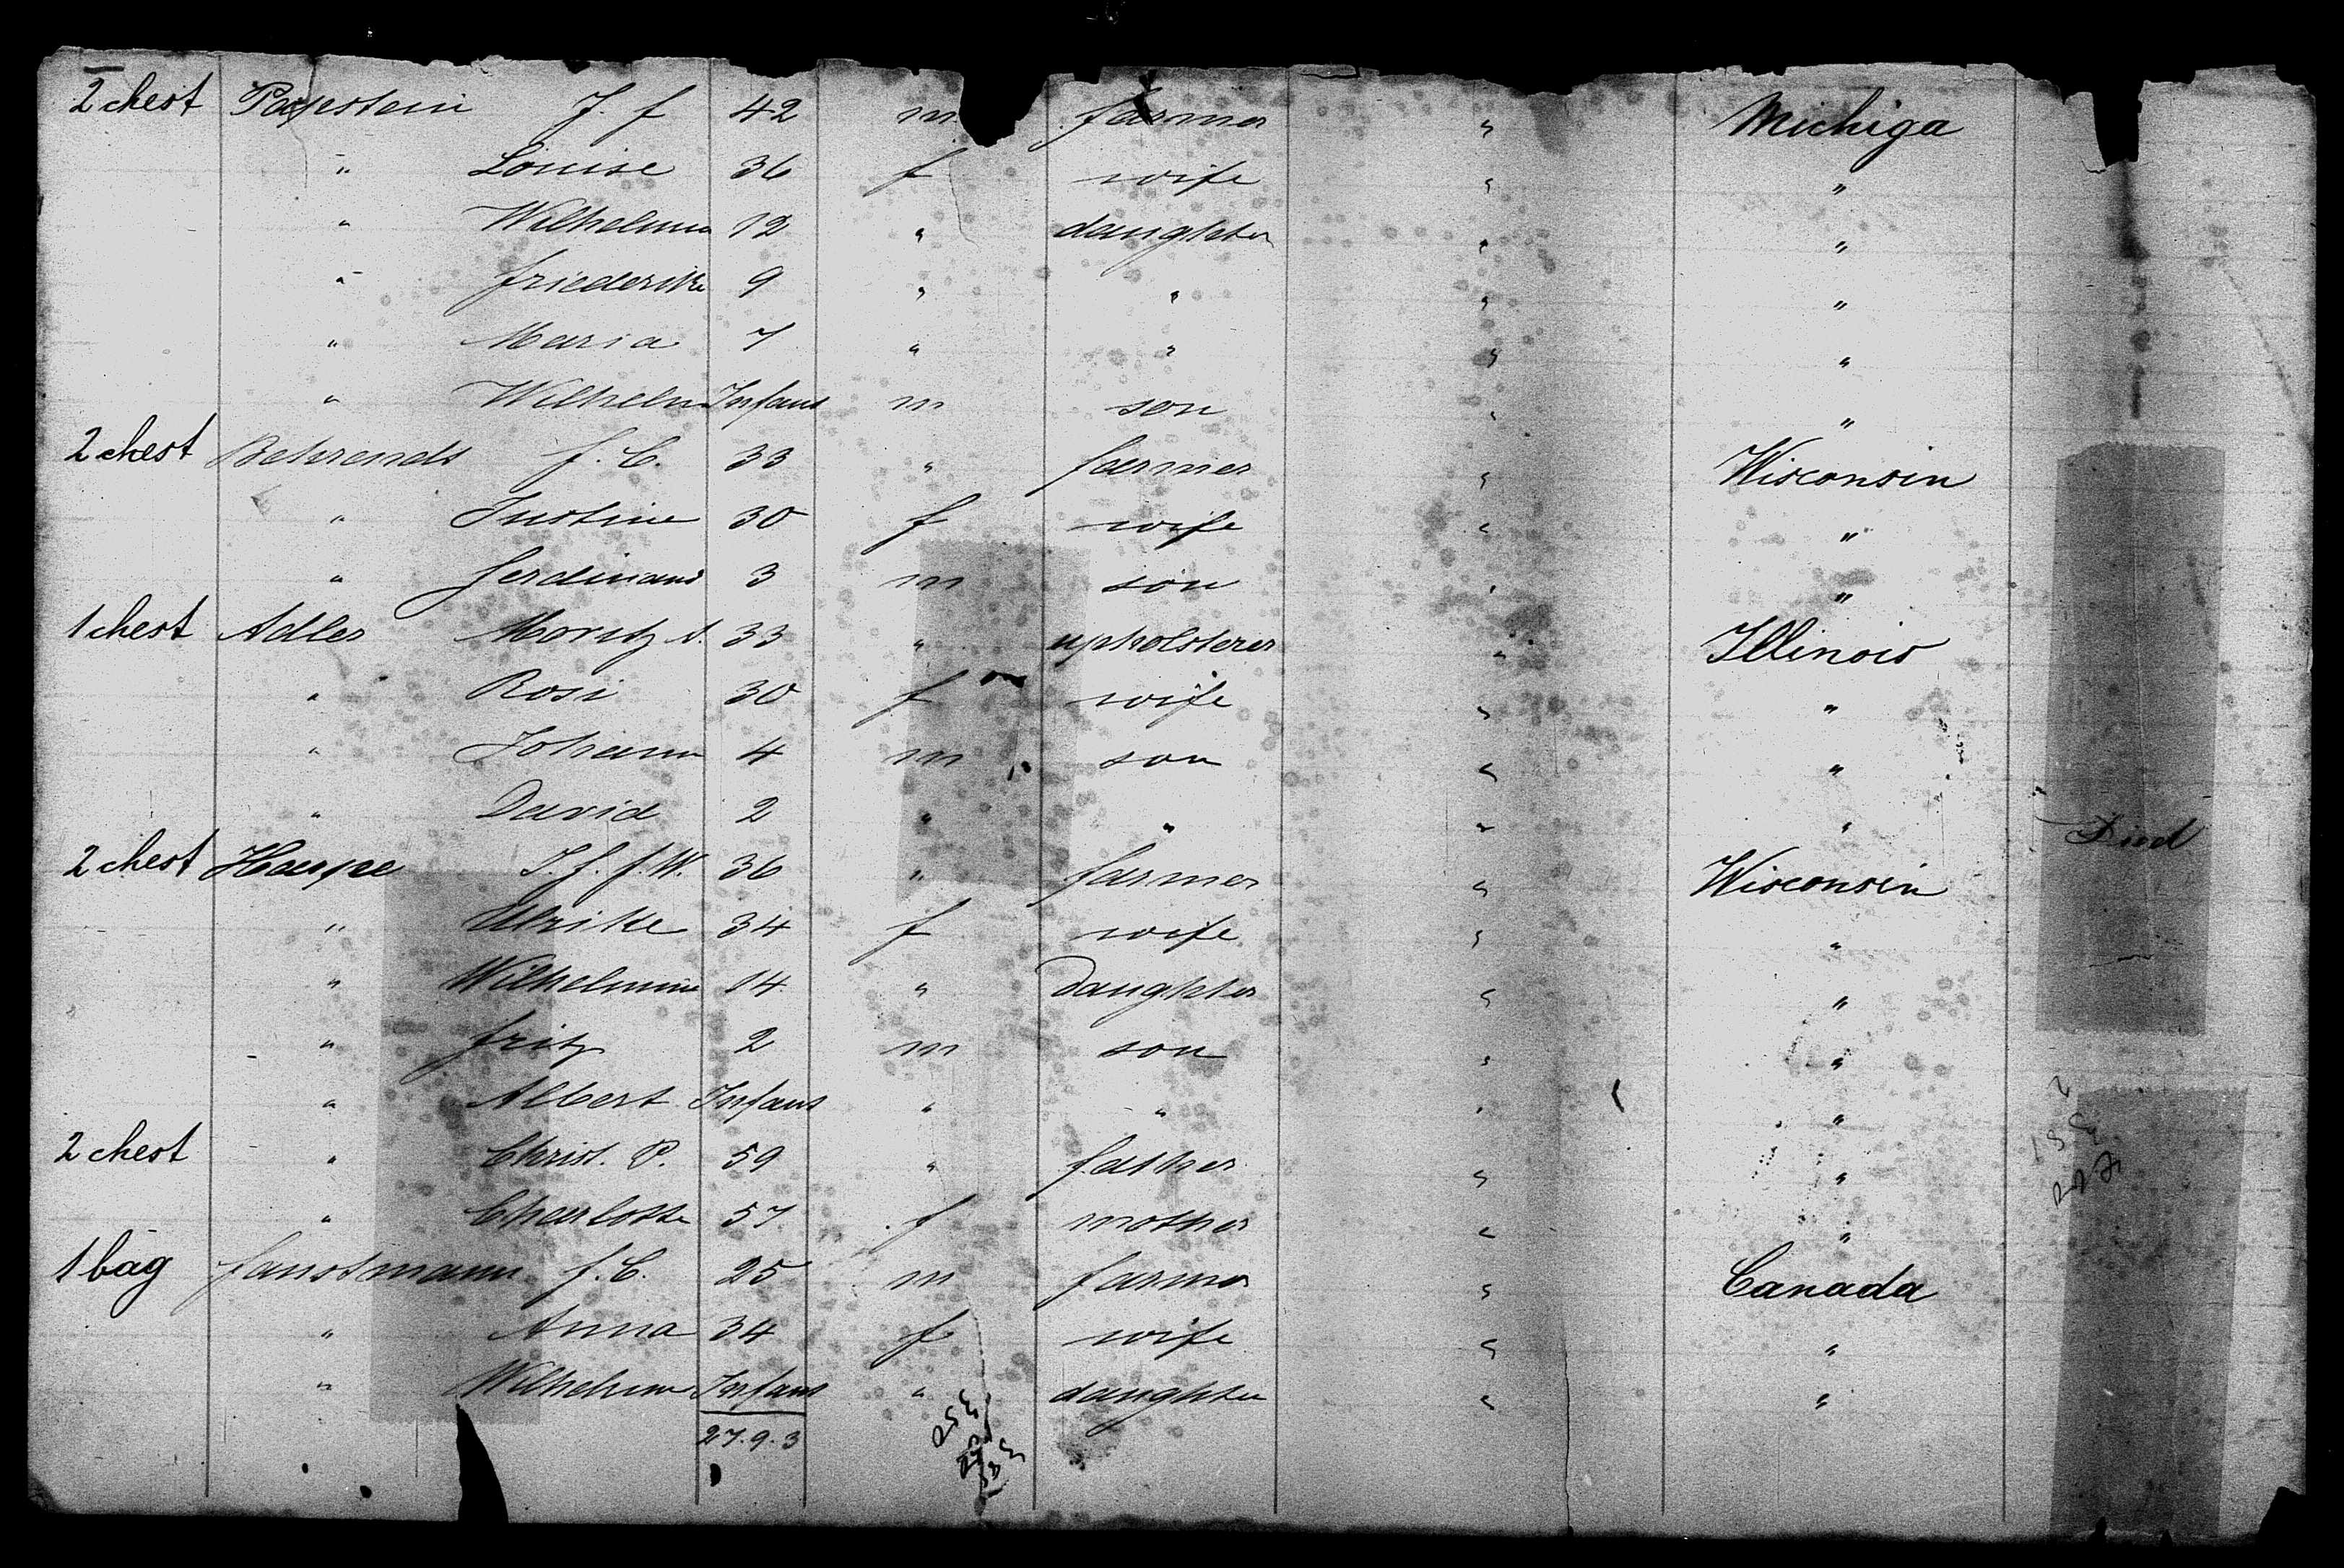 2 chest Papstein J. f 42 m farmer " Michiga
" Louise 36 f wife " "
" Wilhelmin 12 " daughter " "
" friederike 9 " " " "
" Maria 7 " " " "
" Wilhelm Infant m son " "
2 chest Behrends f. C. 33 " farmer " Wisconsin
" Justine 30 f wife " "
" ferdinand 3 m son " "
1 chest Adler Moritz A. 33 " upholsterer " Illinois
" Rosi 30 f wife " "
" Johann 4 m son " "
" David 2 " " " " Died
2 chest Haupe J. f. f. W. 36 " farmer " Wisconsin
" Ulrike 34 f wife " "
" Wilhelmine 14 " Daughter " "
" fritz 2 m son " "
" Albert Infant " " " "
2 chest " Christ. P. 59 " father " "
" Charlotte 57 f mother " "
1 bag faustmann f. C. 25 m farmer " Canada
" Anna 34 f wife " "
" Wilhelmine Infant " daughter " "
27.9.3